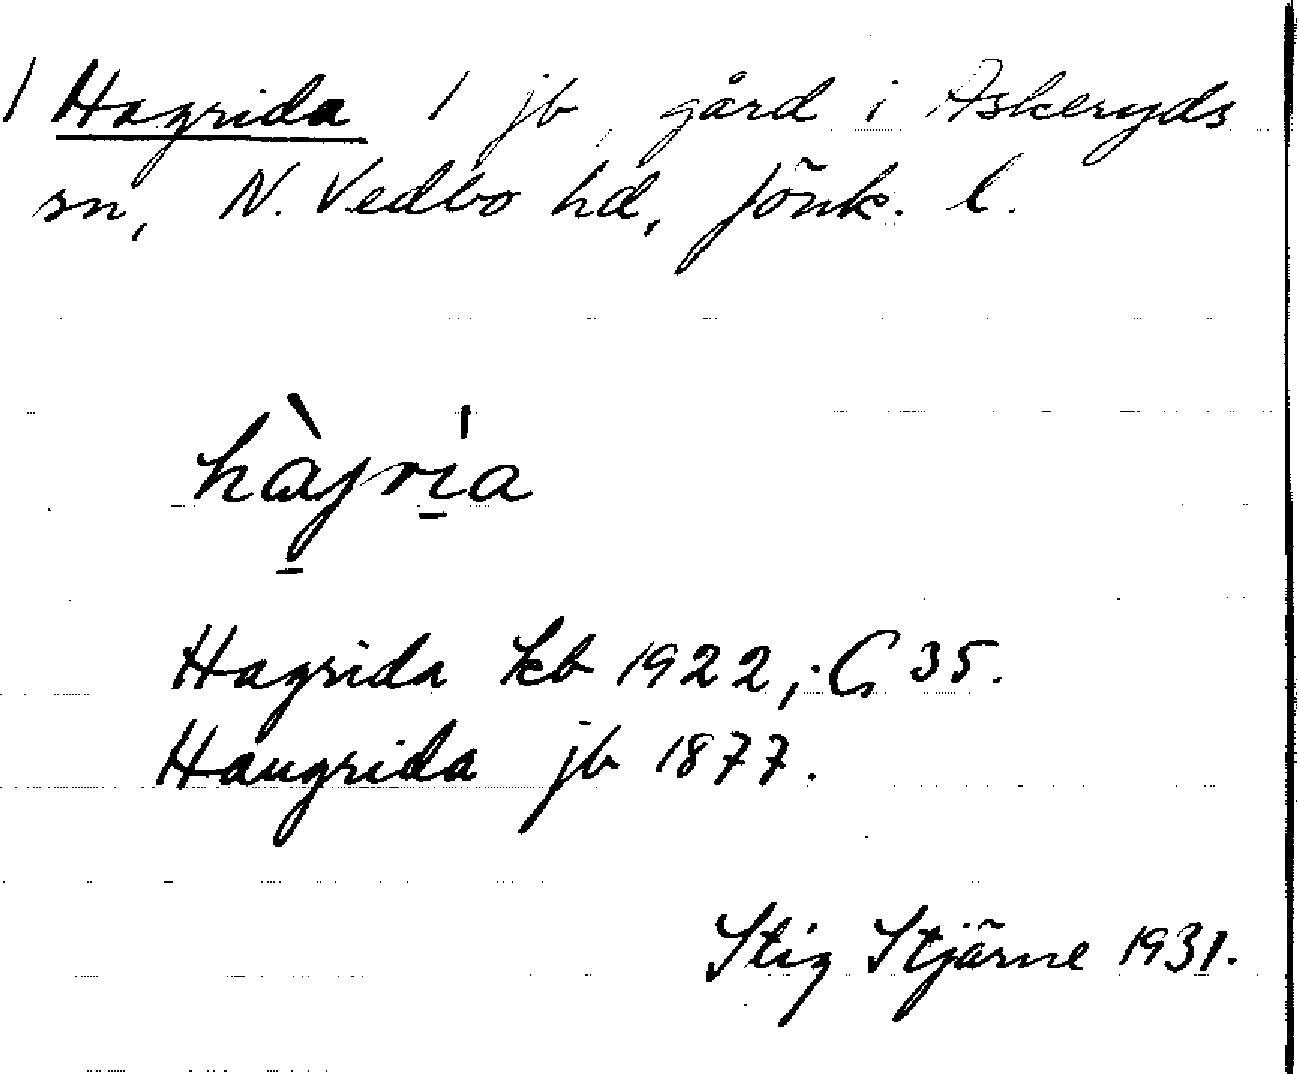 / Hagrida / jb, gård i Askeryds
sn, N. Vedbo hd, Jönk. l.
hàgria
Hagrida kb 1922, G 35.
Haugrida jb 1877.
Stig Stjärne 1931.